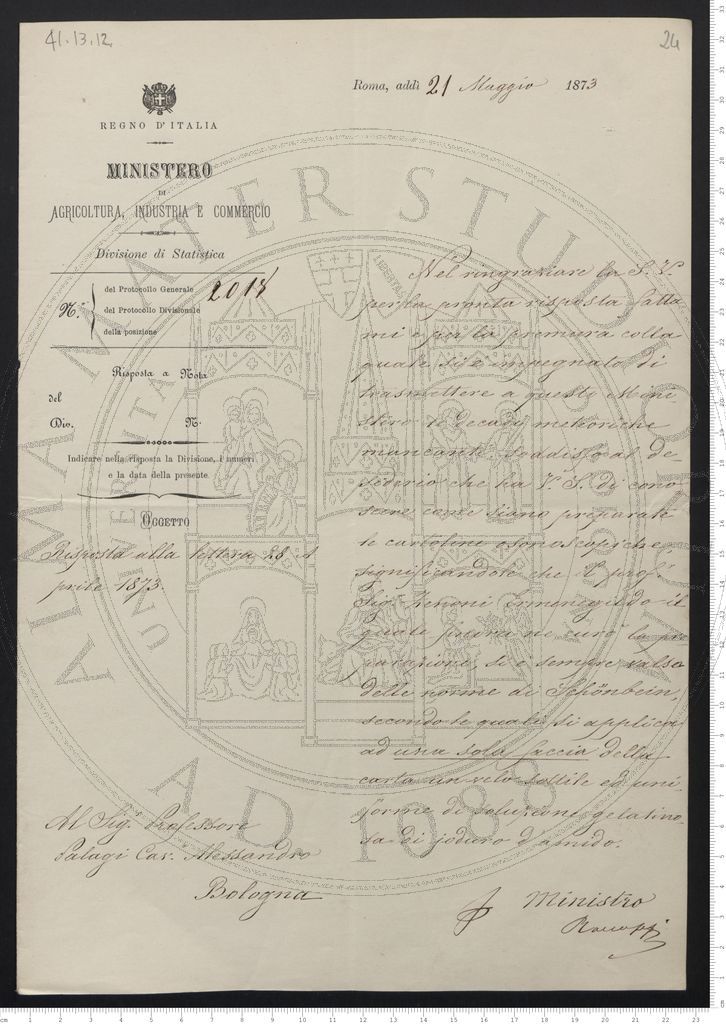 41.13.12.
24
Roma, addì 21 Maggio 1873
REGNO D'ITALIA
MINISTERO
DI
AGRICOLTURA, INDUSTRIA E COMMERCIO
Divisione di Statistica
N.°
del Protocollo Generale 2018
del Protocollo Divisionale
della posizione
Risposta a Nota
del
Div. N.
Indicare nella risposta la Divisione, i numeri
e la data della presente
OGGETTO
Risposta alla lettera 28 A
prile 1873.
Nel ringraziare la S. V.
per la pronta risposta fatta
mi e per la premura colla
quale si è impegnato di
trasmettere a questo Mini
stero le decadi meteoriche
mancanti soddisfo al de-
siderio che ha V. S. di cono
scere come siano preparate
le cartoline ozonoscopiche,
significandole che il prof.
Sig. Zenoni Ermenegildo il
quale finora ne curò la pre
parazione, si è sempre valso
delle norme di Schönbein,
secondo le quali si applica
ad una sola faccia della
carta un velo sottile ed uni
forme di soluzione gelatino
sa di joduro d'amido.
Al Sig. Professore
Palagi Cav. Alessandro
Bologna
Il Ministro
ALMA MATER STUDIORUM
UNIVERSITÀ
A.D. 1088
LIBERTAS
cm 1 2 3 4 5 6 7 8 9 10 11 12 13 14 15 16 17 18 19 20 21 22 23